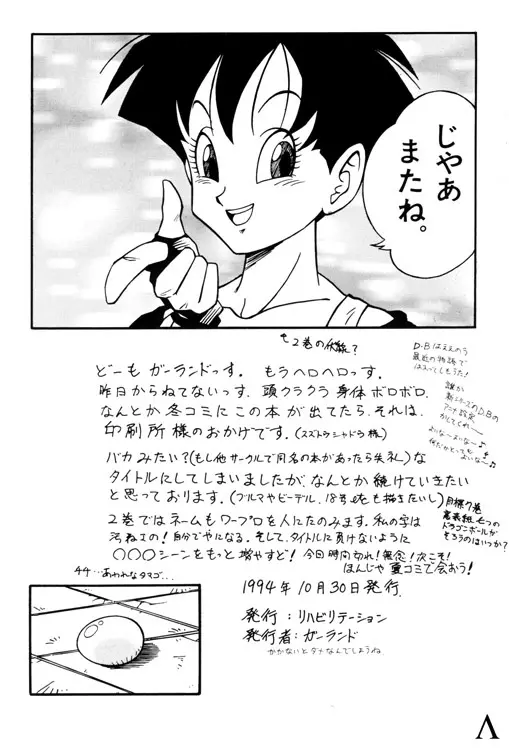 じゃあ
またね。
2巻の伏線?
どーも ガーランドっす。 もうヘロヘロっす。
昨日からねてないっす。頭クラクラ 身体ボロボロ。
なんとか冬コミに この本が 出てたら それは、
印刷所様のおかげです。(スズトウシャドウ様)
バカみたい?(もし他サークルで同名の本があったら失礼)な
タイトルにしてしまいましたが、なんとか続けていきたい
と思っております。(ブルマやビーデル、18号も描きたいし)
2巻ではネームもワープロを人にたのみます。私の字は
自分でやになる。そして、タイトルに負けないように
○○○シーンをもっと増やすど! 今日時間切れ!無念!次こそ!
ほんじゃ 夏コミで会おう!
D.Bはええのう
最近の物語で
誰か
新シリーズのD.Bの
アニメ設定
目標7巻
裏表紙七つの
ドラゴンボールが
そろうのはいつか?
44…あわれなタマゴ…
1994年10月30日発行.
発行:リハビリテーション
発行者:ガーランド
かかないとダメなんでしょうね